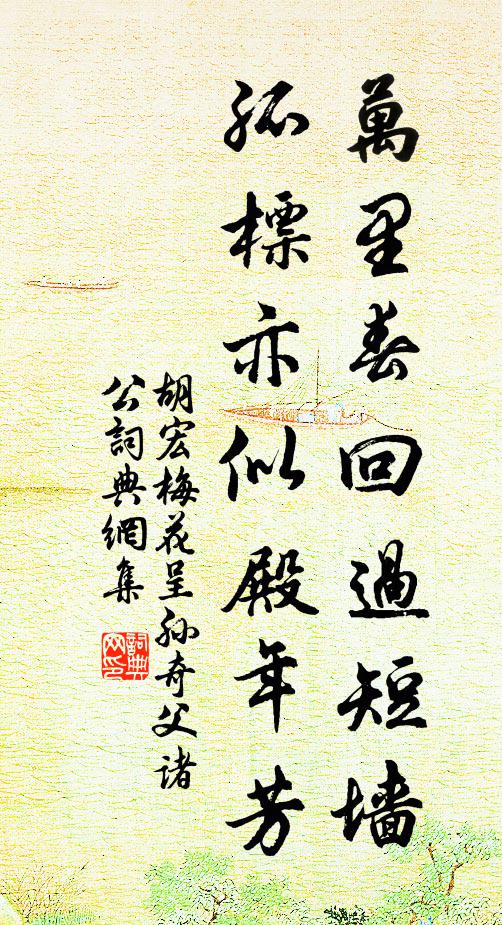 萬里春回過短墻
孤標亦似殿年芳
胡宏梅花呈孙奇父諸
公詞典網集
詞典网印